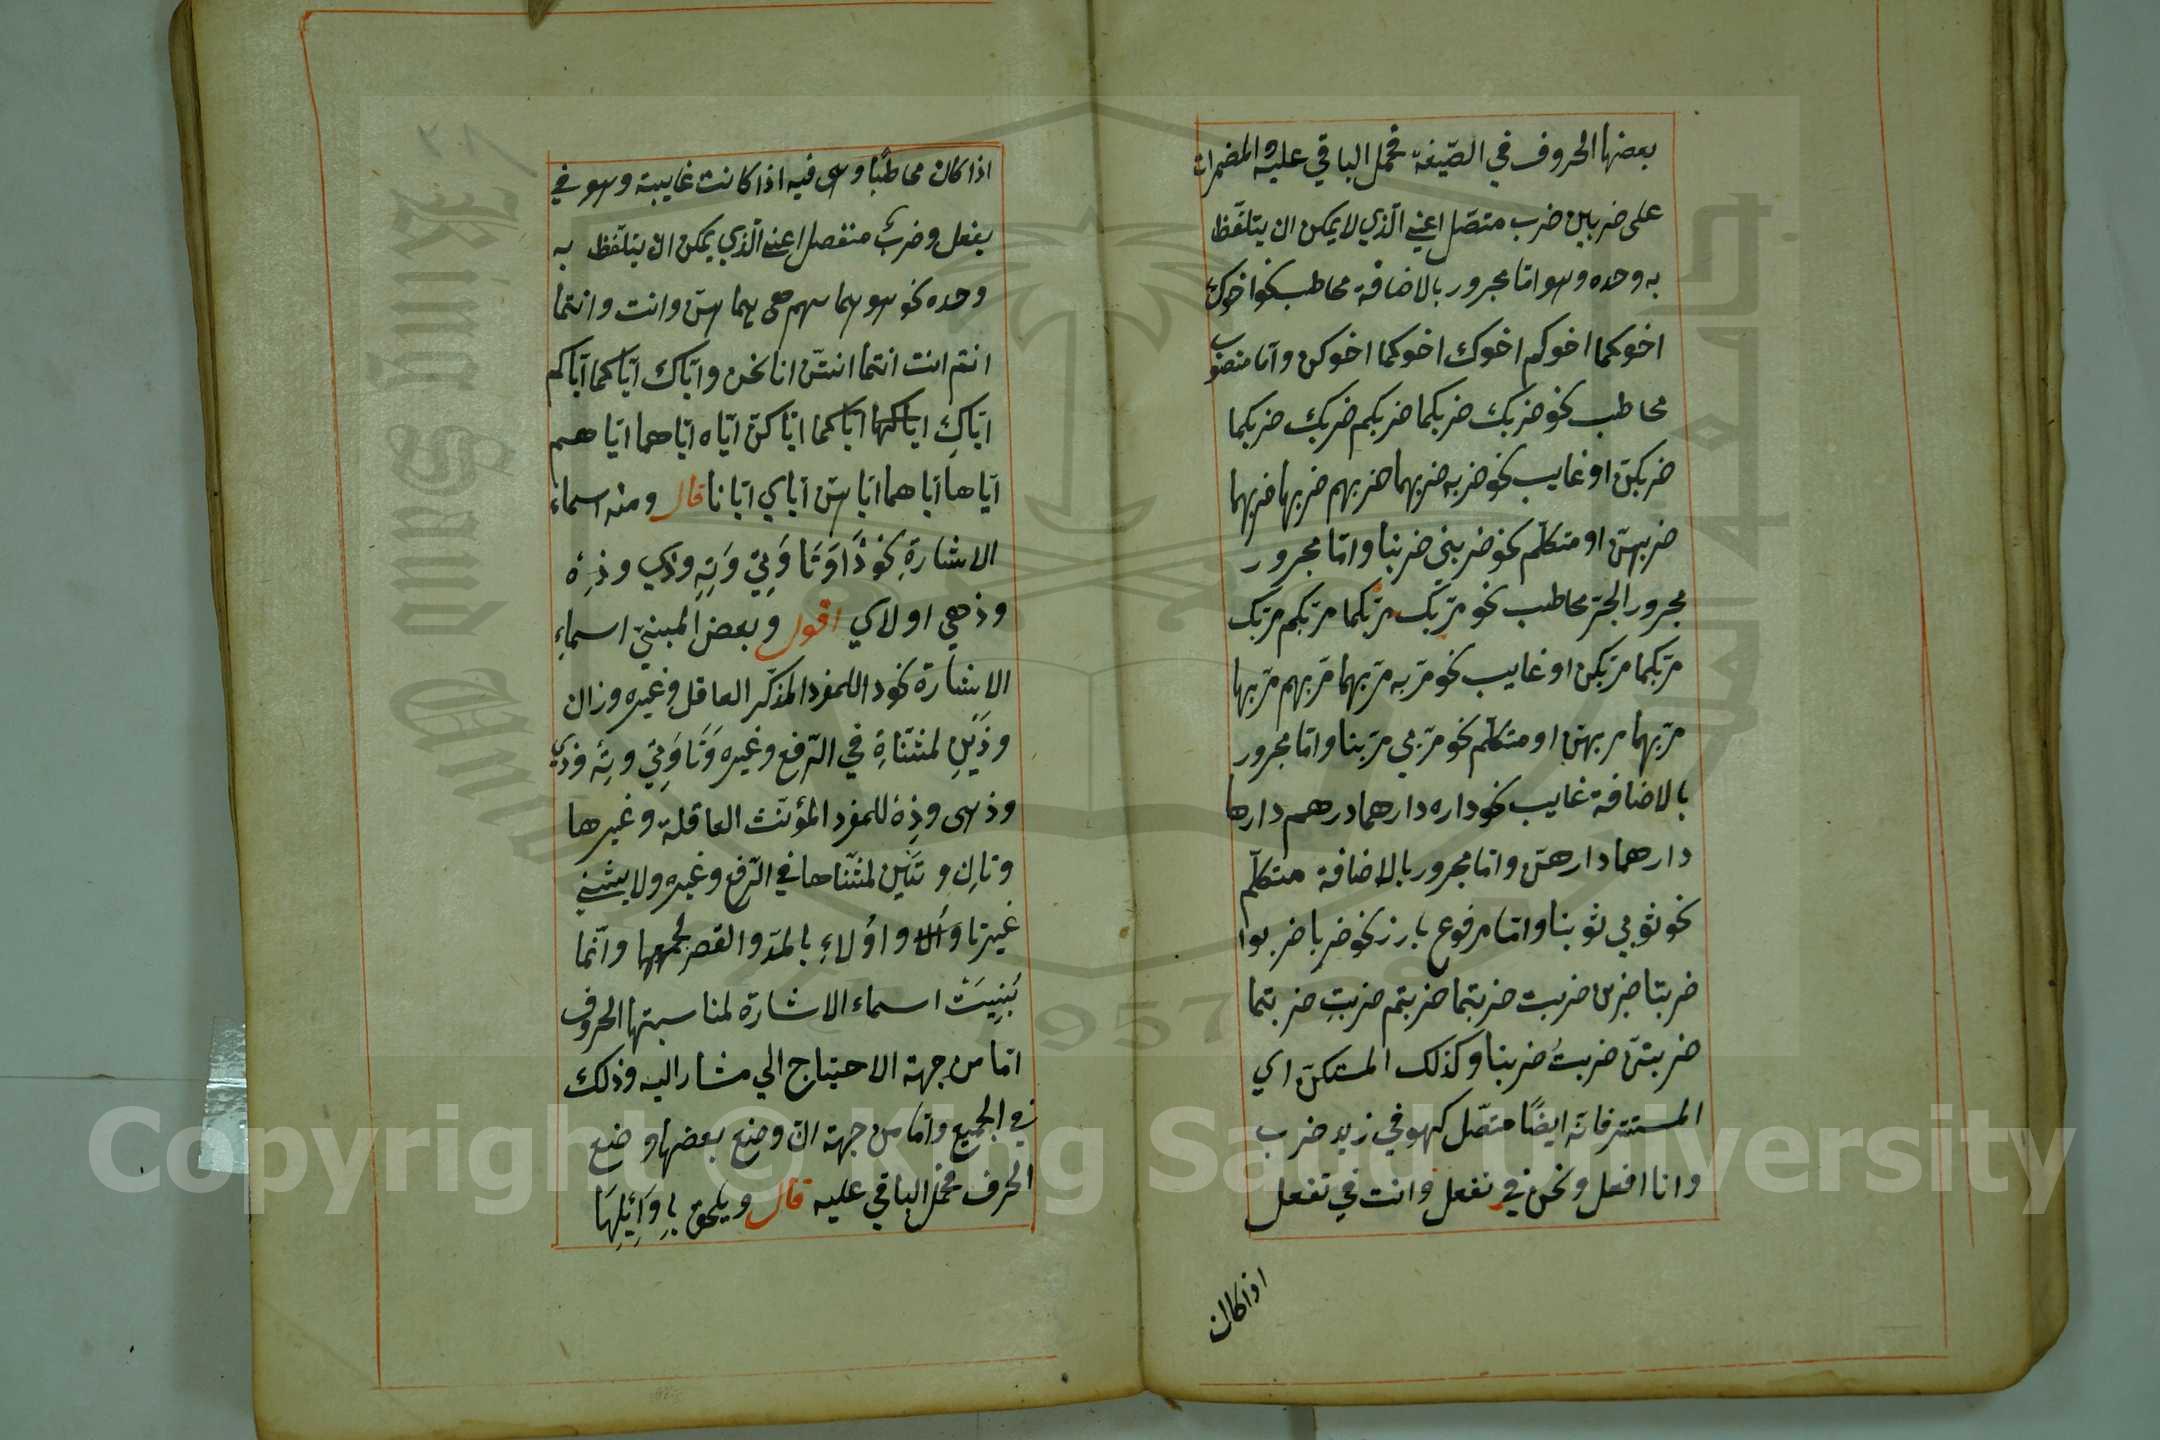 بعضها الحروف في الصّيغة فحمل الباقي عليه والمضمرات
على ضربين ضرب متصّل اعني الّذي لا يمكن ان يتلفّظ
به وحده وهو امّا مجرور بالاضافة مخاطب نحو اخوك
اخوكما اخوكم اخوك اخوكما اخوكن وامّا منصوب
مخاطب نحو ضربك ضربكما ضربكم ضربكِ ضربكما
ضربكنّ او غايب نحو ضربه ضربهما ضربهم ضربها ضربهما
ضربهنّ او متكلّم نحو ضربني ضربنا وامّا مجرور
مجرور الجرّ مخاطب نحو مرّبك مرّبكما مرّبكم مرّبك
مرّبكما مرّبكن او غايب نحو مرّ به مرّ بهما مرّ بهم مرّ بها
مرّ بهما مر بهن او متكلّم نحو مرّ بي مرّ بنا وامّا مجرور
بالاضافة غايب نحو داره دارهما درهم دارها
دارهما دارهنّ وامّا مجرور بالاضافة متكلّم
نحو ثوبي ثوبنا وامّا مرفوع بارز نحو ضربا ضربوا
ضربتا ضربن ضربت ضربتما ضربتم ضربتِ ضربتما
ضربتنّ ضربتُ ضربنا وكذلك المستكنّ اي
المستتر فانّه ايضًا متصّل كهو في زيد ضرب
وانا افعل ونحن في نفعل وانت في تفعل
اذا كان
اذا كان مخاطبًا وهى فيه اذا كانت غايبة وهو في
يفعل وضربٌ منفصل اعني الّذي يمكن ان يتلفّظ به
وحده نحو هو هما هم هى هما هنّ وانت وانتما
انتم انت انتما انتنّ انا نحن وايّاك ايّاكما ايّاكم
ايّاكِ ايّاكما ايّاكنّ ايّاه ايّاهما ايّاهم
ايّاها ايّاهما ايّاهنّ ايّاي ايّانا قال ومنه اسماء
الاشارةِ نحو ذَا وَتَا وَتِي وَتِهِ وذي وذِهْ
وذهي اولاي اقول وبعض المبنيّ اسماءِ
الاشارة نحو ذا للمفرد المذكّر العاقل وغيره وزان
وذَيْنِ لمثنّاةِ في الرّفع وغيره وَتَا وَتِي وتِهْ وذي
وذهى وذِهْ للمفرد المؤنّث العاقلة وغيرها
وتانِ و تَيْنِ لمثنّاها في الرّفع وغيره ولا يثنّي
غيرتا واُولاءِ بالمدّ والقصر لجمعهما وانّما
بُنِيَتْ اسماء الاشارة لمناسبتها الحروف
امّا من جهة الاحتياج الي مشار اليه وذلك
في الجميع وامّا من جهة انّ وضع بعضها وضع
الحرف فحمل الباقي عليه قال ويلحق باَوَائِلِهَا
Copyright © King Saud University
1957